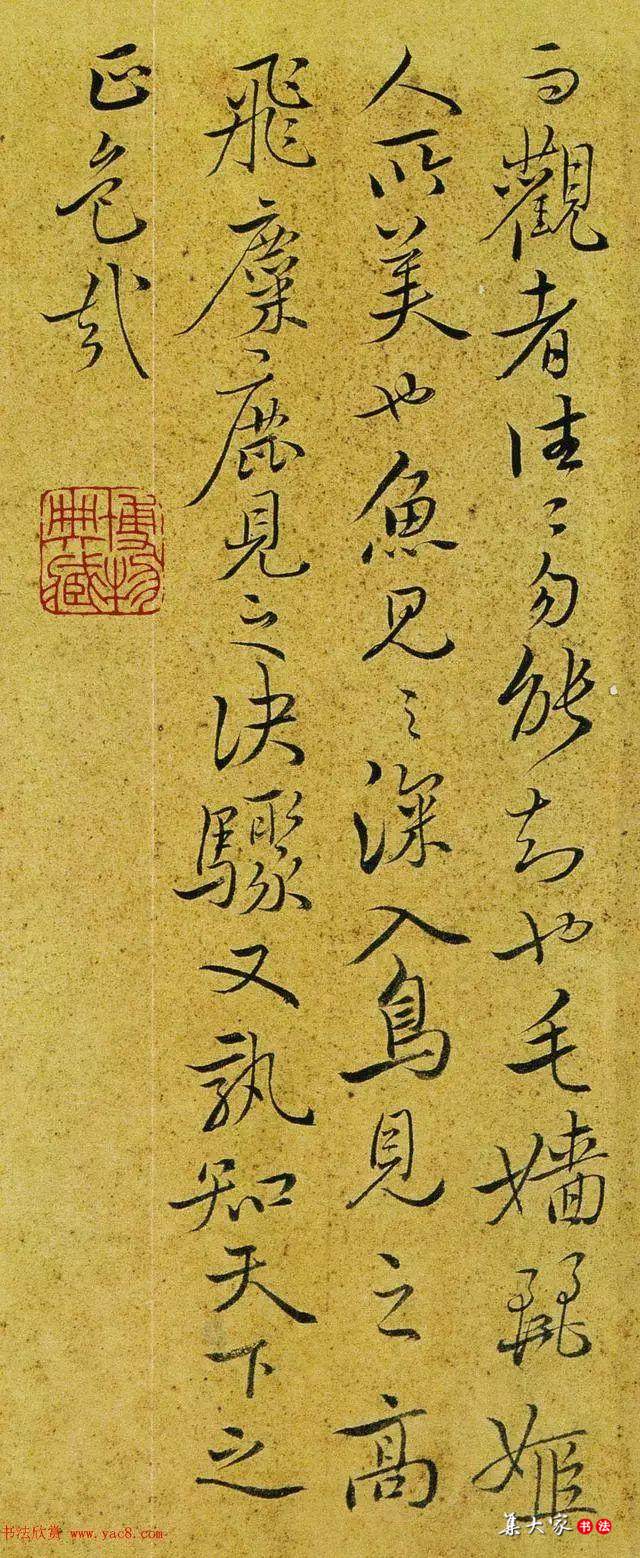 而觀者往〻勿能知也毛嬙麗姬
人所美也魚見之深入鳥見之高
飛麋鹿見之決驟又孰知天下之
正色哉
博物
典藏
书法欣赏 www.yac8.com
集大家 书法